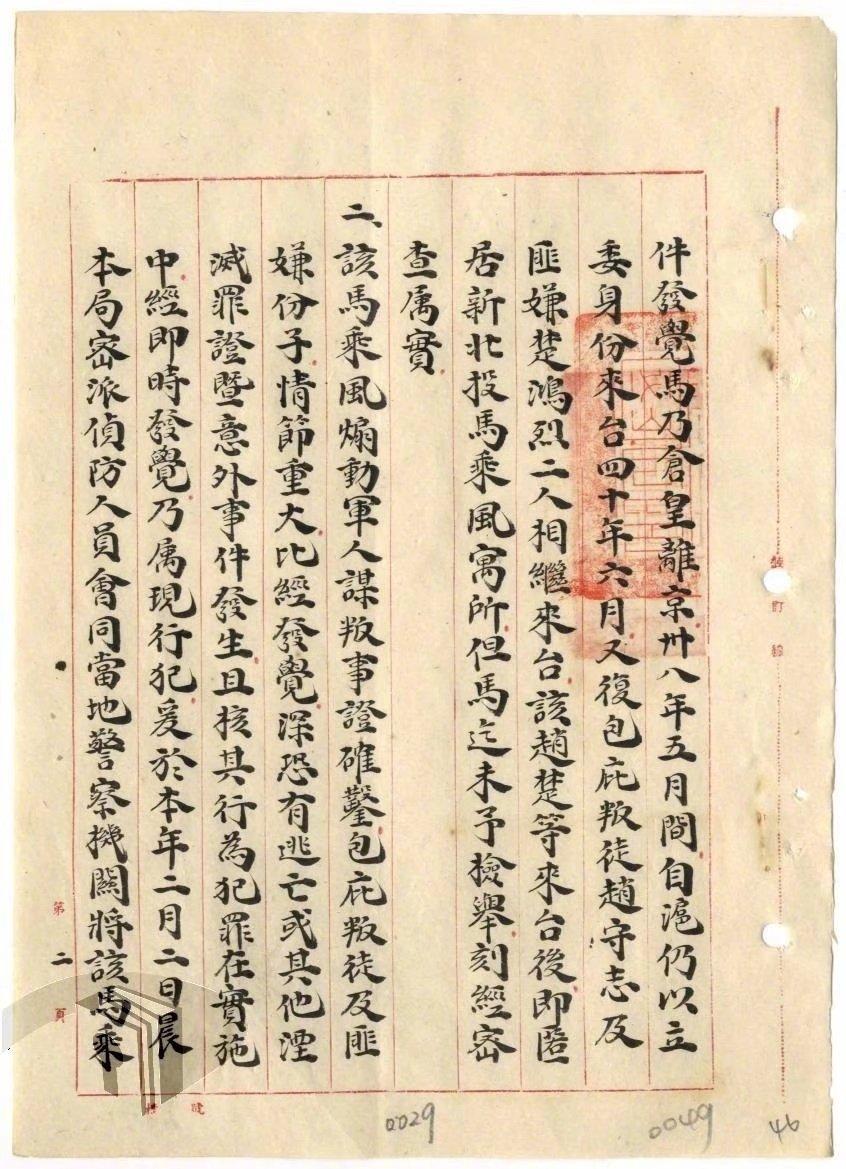 件發覺馬乃倉皇離京卅八年五月間自滬仍以立
委身份來台四十年六月又復包庇叛徒趙守志及
匪嫌楚鴻烈二人相繼來台該趙楚等來台後即匿
居新北投馬乘風寓所但馬迄未予檢舉刻經密
查属實
二、該馬乘風煽動軍人謀叛事證確鑿包庇叛徒及匪
嫌份子情節重大比經發覺深恐有逃亡或其他湮
滅罪證暨意外事件發生且核其行為犯罪在實施
中經即時發覺乃属現行犯爰於本年二月二日晨
本局密派偵防人員會同當地警察機關將該馬乘
第二頁
裝訂線
0029
0049
46